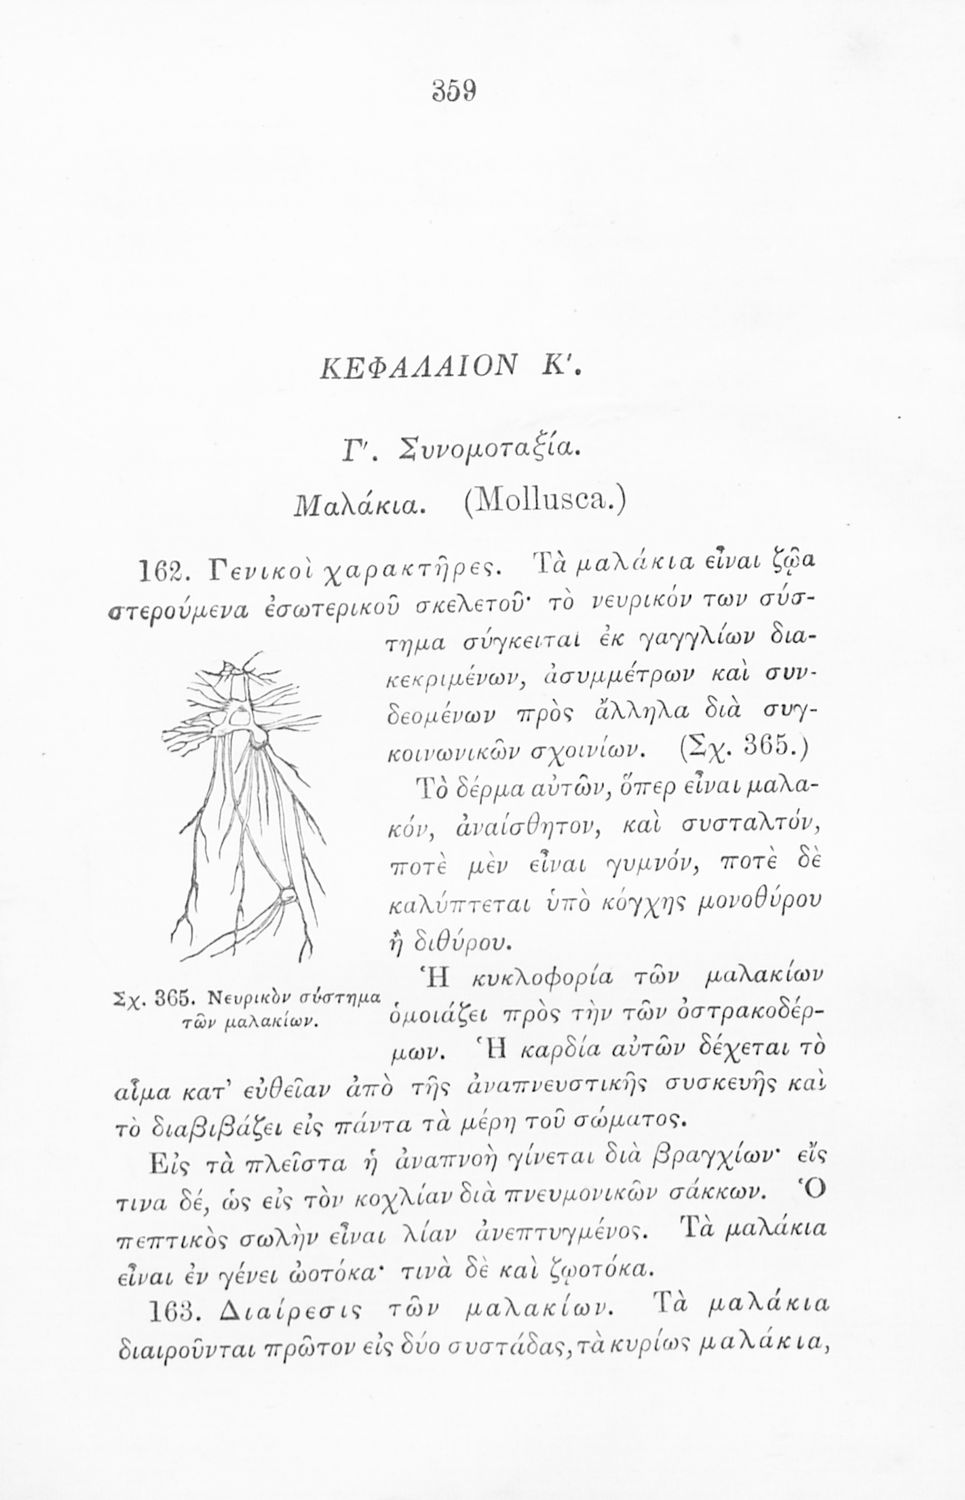 359
ΚΕΦΑΛΑΙΟΝ Κ'.
Γ'. Συνομοταξία.
Μαλάκια. (Mollusca.)
162. Γενικοὶ χαρακτῆρες. Τὰ μαλάκια εἶναι ζῷα
στερούμενα ἐσωτερικοῦ σκελετοῦ· τὸ νευρικόν των σύσ-
τημα σύγκειται ἐκ γαγγλίων δια-
κεκριμένων, ἀσυμμέτρων καὶ συν-
δεομένων πρὸς ἄλληλα διὰ συγ-
κοινωνικῶν σχοινίων. (Σχ. 365.)
Τὸ δέρμα αὐτῶν, ὅπερ εἶναι μαλα-
κόν, ἀναίσθητον, καὶ συσταλτόν,
ποτὲ μὲν εἶναι γυμνόν, ποτὲ δὲ
καλύπτεται ὑπὸ κόγχης μονοθύρου
ἢ διθύρου.
Ἡ κυκλοφορία τῶν μαλακίων
Σχ. 365. Νευρικὸν σύστημα
τῶν μαλακίων.
ὁμοιάζει πρὸς τὴν τῶν ὀστρακοδέρ-
μων. Ἡ καρδία αὐτῶν δέχεται τὸ
αἷμα κατ' εὐθεῖαν ἀπὸ τῆς ἀναπνευστικῆς συσκευῆς καὶ
τὸ διαβιβάζει εἰς πάντα τὰ μέρη τοῦ σώματος.
Εἰς τὰ πλεῖστα ἡ ἀναπνοὴ γίνεται διὰ βραγχίων· εἴς
τινα δέ, ὡς εἰς τὸν κοχλίαν διὰ πνευμονικῶν σάκκων. Ὁ
πεπτικὸς σωλὴν εἶναι λίαν ἀνεπτυγμένος. Τὰ μαλάκια
εἶναι ἐν γένει ὠοτόκα· τινὰ δὲ καὶ ζῳοτόκα.
163. Διαίρεσις τῶν μαλακίων. Τὰ μαλάκια
διαιροῦνται πρῶτον εἰς δύο συστάδας, τὰ κυρίως μαλάκια,